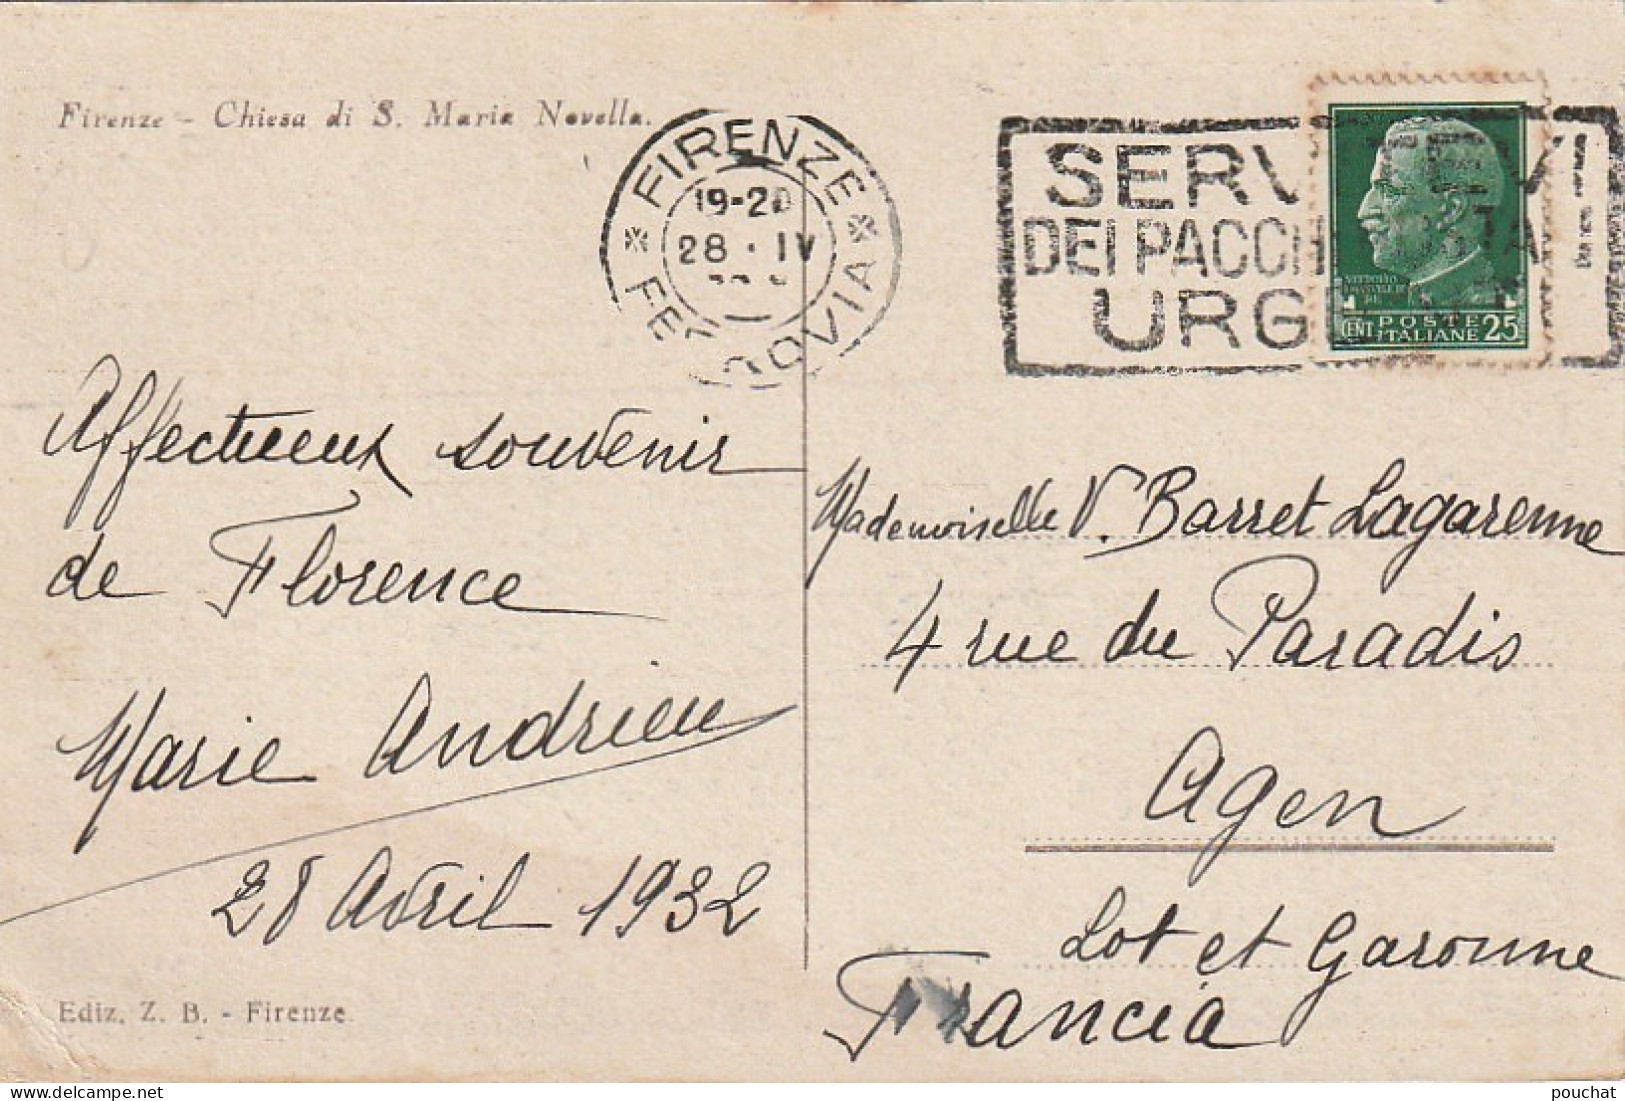 Firenze - Chiesa di S. Maria Novella.
FIRENZE
19-20
28 · IV
FERROVIA
SERV
DEI PACCHI
URG
VITTORIO
EMANUELE III
RE
CENT POSTE
ITALIANE 25
Affectueux souvenir
de Florence
Marie Andrieu
28 Avril 1932
Mademoiselle V. Barret Lagarenne
4 rue du Paradis
Agen
Lot et Garonne
Francia
Ediz. Z. B. - Firenze
pouchat